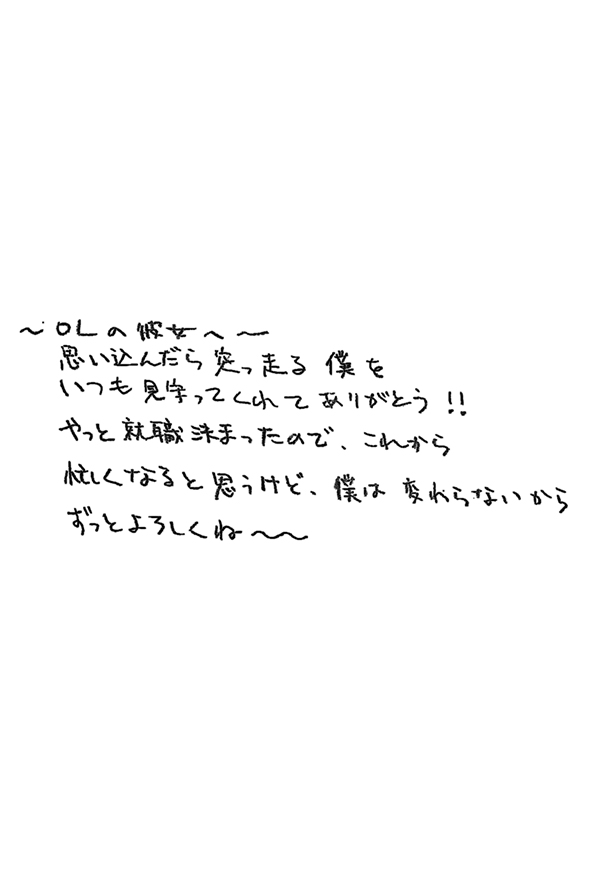 ~OLの彼女へ~
思い込んだら突っ走る僕を
いつも見守ってくれてありがとう!!
やっと就職決まったので、これから
忙しくなると思うけど、僕は変わらないから
ずっとよろしくね~~